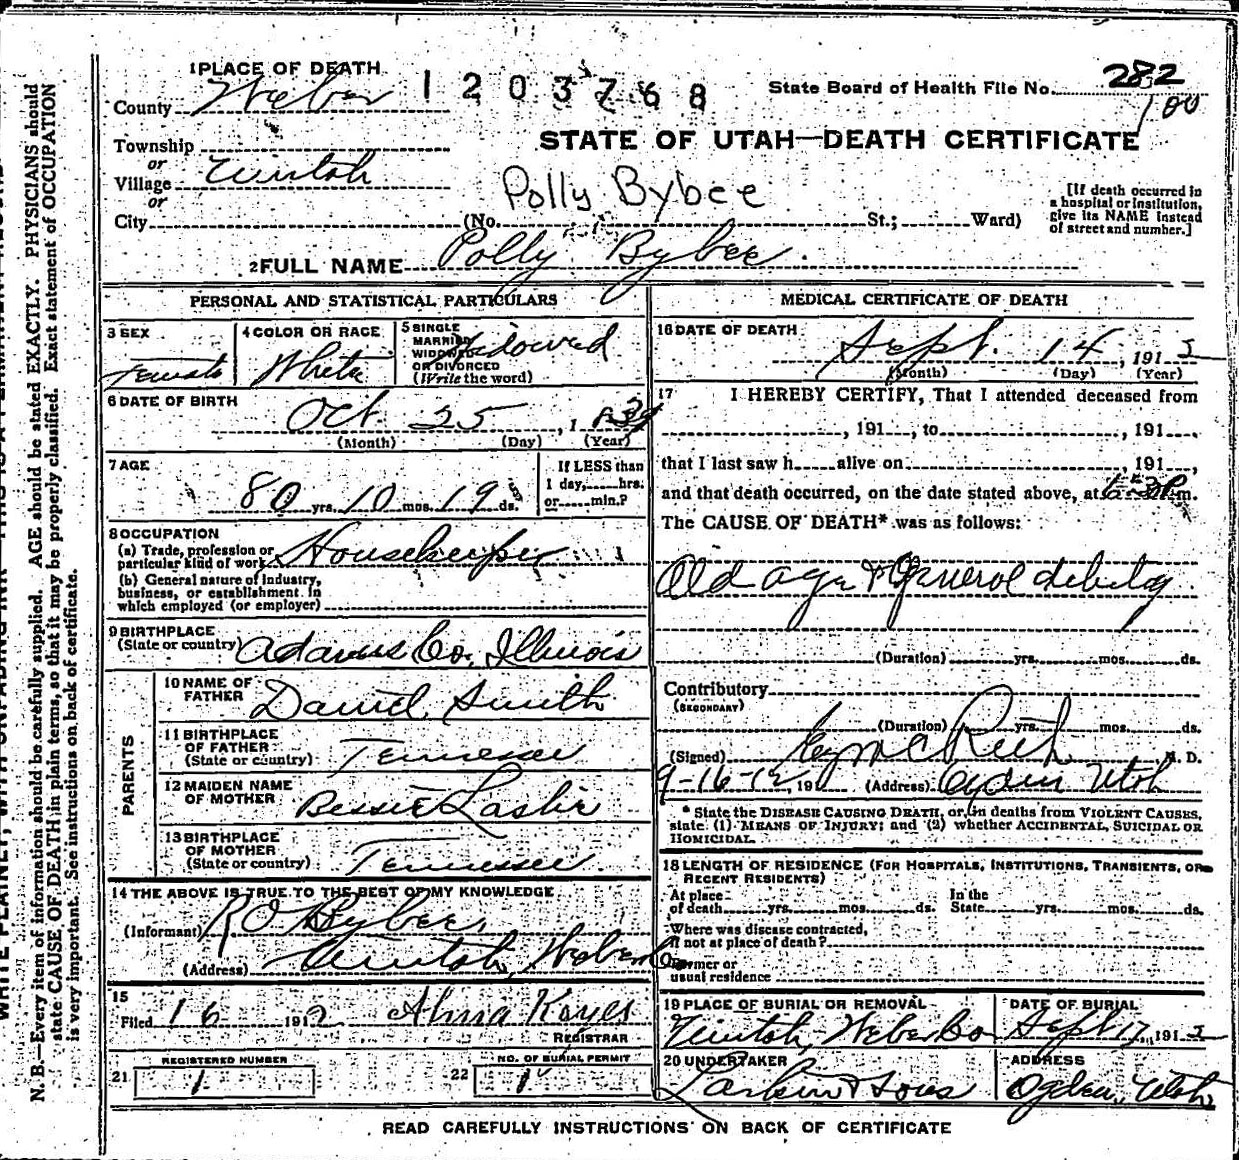 WRITE PLAINLY, WITH UNFADING INK—THIS IS A PERMANENT RECORD
N. B.—Every item of information should be carefully supplied. AGE should be stated EXACTLY. PHYSICIANS should
state CAUSE OF DEATH in plain terms, so that it may be properly classified. Exact statement of OCCUPATION
is very important. See instructions on back of certificate.
1 PLACE OF DEATH
County Weber
1203768
State Board of Health File No. 282
100
STATE OF UTAH—DEATH CERTIFICATE
Township
or
Village Uintah
or
City
Polly Bybee
(No. St.; Ward)
[If death occurred in
a hospital or institution,
give its NAME instead
of street and number.]
2 FULL NAME Polly Bybee.
PERSONAL AND STATISTICAL PARTICULARS
3 SEX
Female
4 COLOR OR RACE
White
5 SINGLE
MARRIED
WIDOWED
OR DIVORCED
(Write the word)
Widowed
6 DATE OF BIRTH
Oct. 25, 1
(Month) (Day) (Year)
7 AGE
80 yrs. 10 mos. 19 ds.
If LESS than
1 day, hrs.
or min.?
8 OCCUPATION
(a) Trade, profession or
particular kind of work Housekeeper
(b) General nature of industry,
business, or establishment in
which employed (or employer)
9 BIRTHPLACE
(State or country) Adams Co. Illinois
PARENTS
10 NAME OF
FATHER Daniel Smith
11 BIRTHPLACE
OF FATHER
(State or country) Tennessee
12 MAIDEN NAME
OF MOTHER Bessie Laslie
13 BIRTHPLACE
OF MOTHER
(State or country) Tennessee
14 THE ABOVE IS TRUE TO THE BEST OF MY KNOWLEDGE
(Informant) R O Bybee,
(Address) Uintah, Weber Co
15
Filed 16 1912 Alma Keyes
REGISTRAR
21 REGISTERED NUMBER
1
22 NO. OF BURIAL PERMIT
1
MEDICAL CERTIFICATE OF DEATH
16 DATE OF DEATH
Sept. 14, 1912
(Month) (Day) (Year)
17 I HEREBY CERTIFY, That I attended deceased from
, 191 , to , 191 ,
that I last saw h alive on , 191 ,
and that death occurred, on the date stated above, at m.
The CAUSE OF DEATH* was as follows:
Old age & General debility
(Duration) yrs. mos. ds.
Contributory
(SECONDARY)
(Duration) yrs. mos. ds.
(Signed) M. D.
9-16-12, 191 (Address) Ogden Utah
* State the DISEASE CAUSING DEATH, or, in deaths from VIOLENT CAUSES,
state (1) MEANS OF INJURY; and (2) whether ACCIDENTAL, SUICIDAL OR
HOMICIDAL.
18 LENGTH OF RESIDENCE (FOR HOSPITALS, INSTITUTIONS, TRANSIENTS, OR
RECENT RESIDENTS)
At place
of death yrs. mos. ds.
In the
State yrs. mos. ds.
Where was disease contracted,
if not at place of death?
Former or
usual residence
19 PLACE OF BURIAL OR REMOVAL
Uintah, Weber Co
DATE OF BURIAL
Sept 17, 1912
20 UNDERTAKER
Larkin & Sons
ADDRESS
Ogden, Utah
READ CAREFULLY INSTRUCTIONS ON BACK OF CERTIFICATE